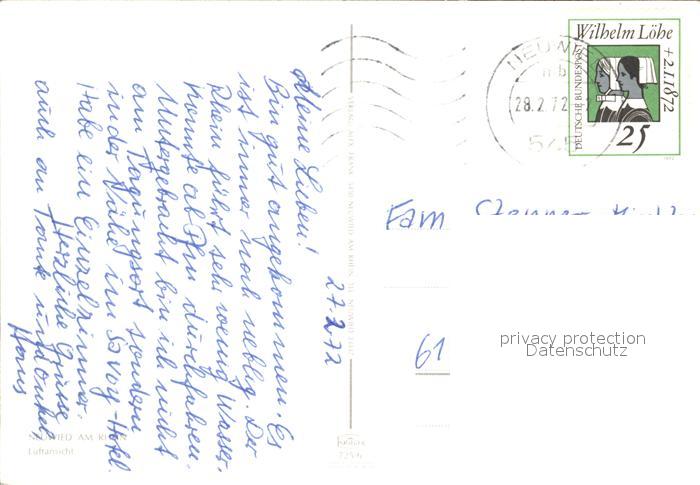 27.2.72
Meine Lieben!
Bin gut angekommen. Es
ist immer noch neblig. Der
Rhein führt sehr wenig Wasser.
Konnte ab durchfahren.
Untergebracht bin ich nicht
am Tagungsort sondern
in der Nähe im Savoy-Hotel.
Habe ein Einzelzimmer.
Herzliche Grüsse
auch an Tante und Onkel,
Hans
NEUWIED AM RHEIN
Luftansicht
725/6
Wilhelm Löhe
+ 2.1.1872
DEUTSCHE BUNDESPOST
25
NEUWI
28.2.72
Fam
61
privacy protection
Datenschutz